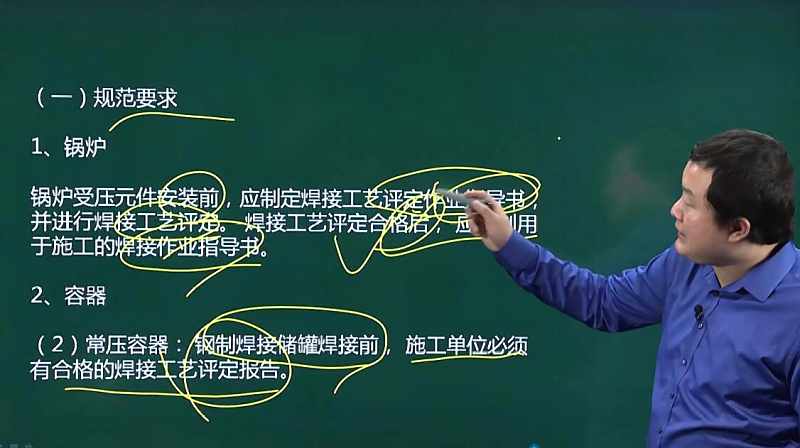 （一）规范要求
1、锅炉
锅炉受压元件安装前，应制定焊接工艺评定作业指导书，
并进行焊接工艺评定。焊接工艺评定合格后，应 用
于施工的焊接作业指导书。
2、容器
（2）常压容器：钢制焊接储罐焊接前，施工单位必须
有合格的焊接工艺评定报告。